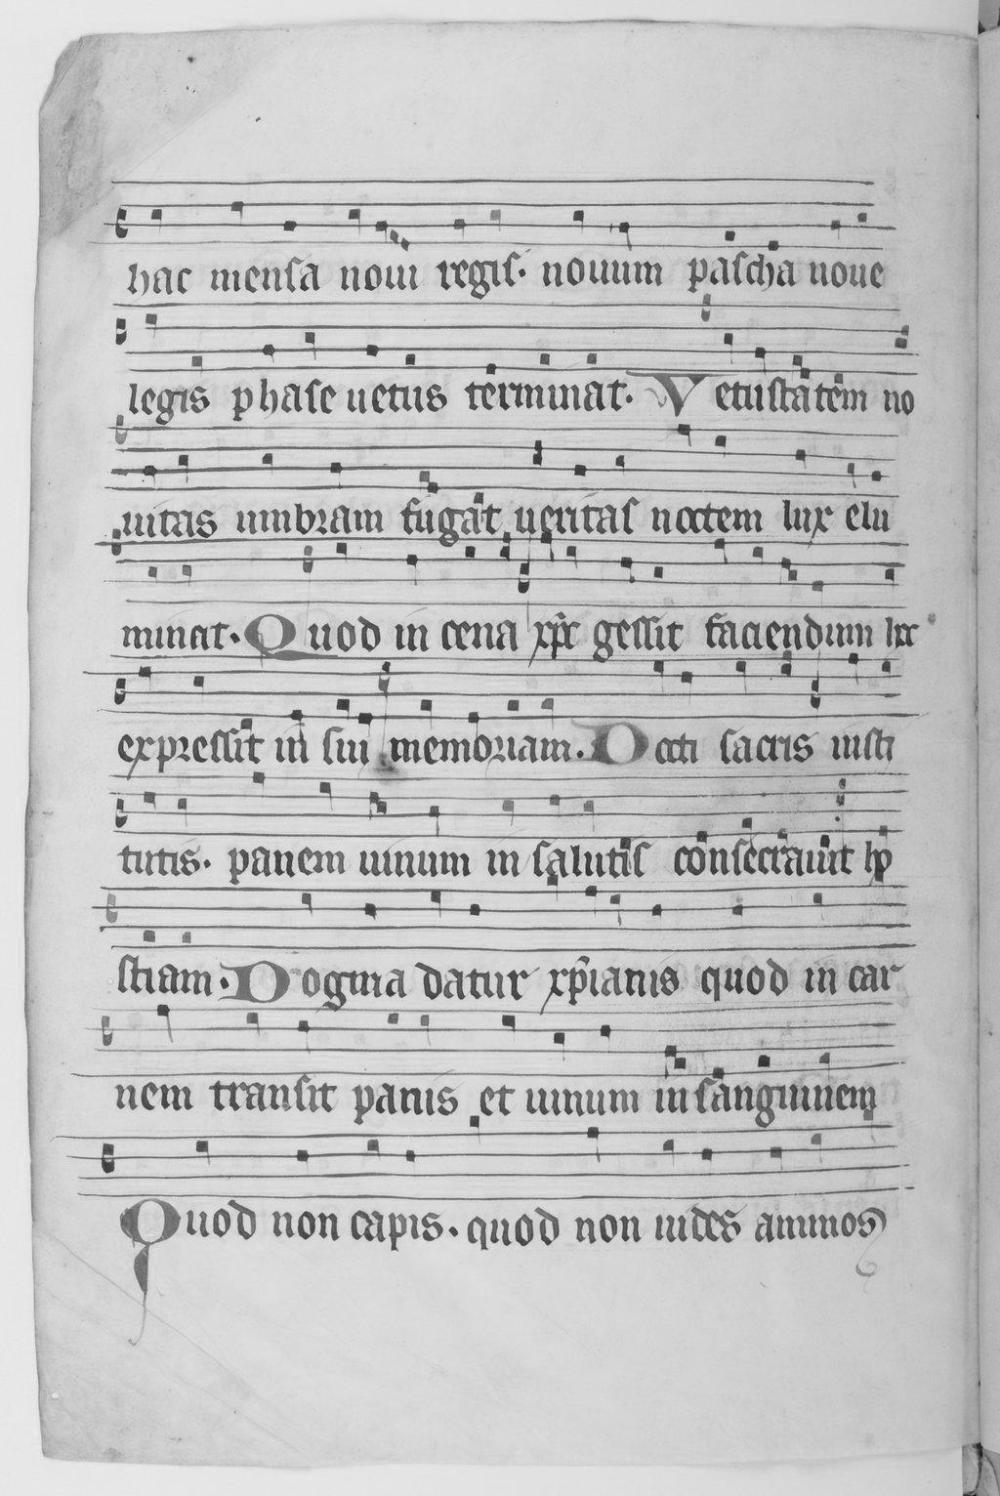 hac mensa noui regis. nouum pascha noue
legis phase uetus terminat. Vetustatem no
uitas umbram fugat ueritas noctem lux elu
minat. Quod in cena xp̄c gessit faciendum hoc
expressit in sui memoriam. Docti sacris insti
tutis. panem uinum in salutis consecrauit ho
stiam. Dogma datur xp̄ianis quod in car
nem transit panis et uinum in sanguinem
Quod non capis. quod non uides animos